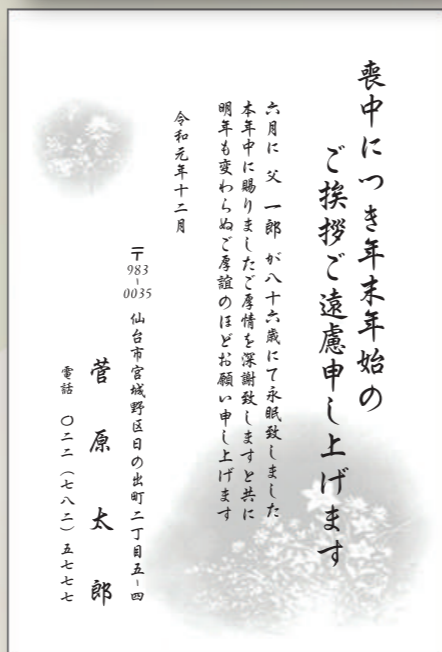 喪中につき年末年始の
ご挨拶ご遠慮申し上げます
六月に 父 一郎 が八十六歳にて永眠致しました
本年中に賜りましたご厚情を深謝致しますと共に
明年も変わらぬご厚誼のほどお願い申し上げます
令和元年十二月
〒983-0035 仙台市宮城野区日の出町二丁目五-四
菅原太郎
電話 〇二二(七八二)五七七七